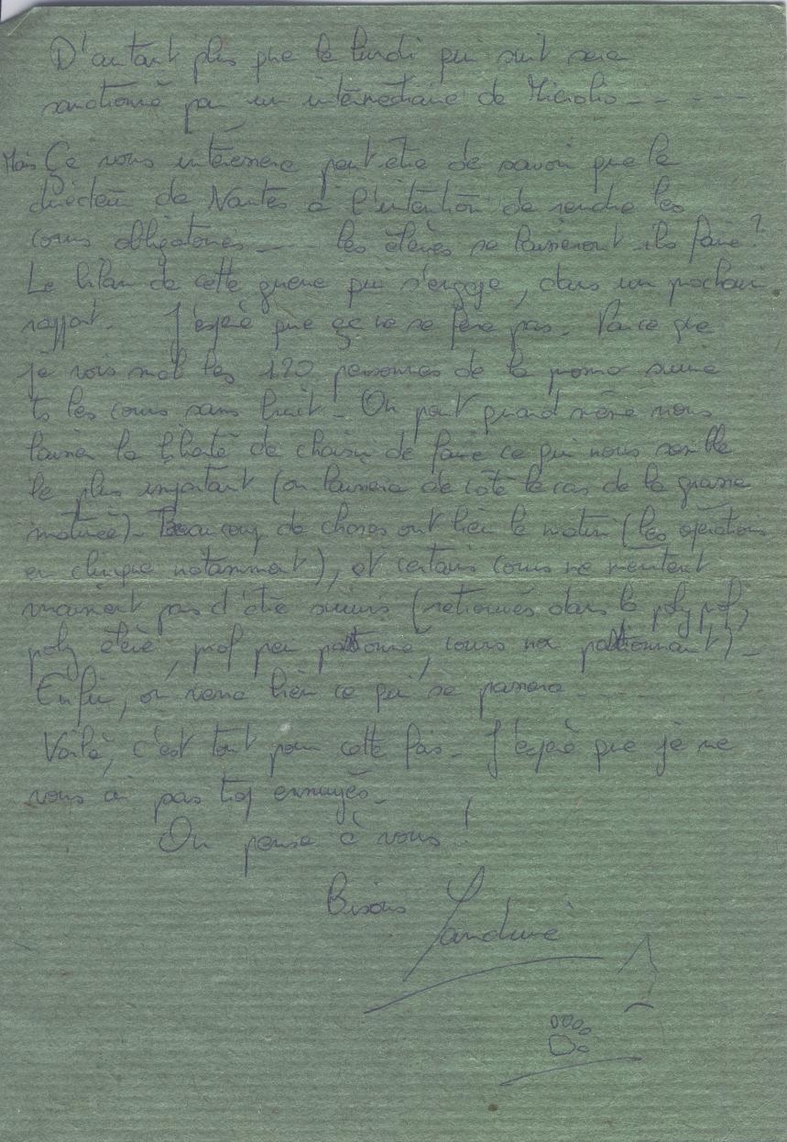 D'autant plus que le lundi qui suit sera
sanctionné par un intermédiaire de Microbio - - - - -
Mais Ça vous intéressera peut être de savoir que le
directeur de Nantes à l'intention de rendre les
cours obligatoires - - - les élèves se laisseront ils faire ?
Le bilan de cette guerre qui s'engage, dans un prochain
rapport. J'espère que ça ne se fera pas - Parce que
je vois mal les 120 personnes de la promo suivre
ts les cours sans bruit ! On peut quand même nous
laisser la liberté de choisir de faire ce qui nous semble
le plus important (on laissera de côté le cas de la grasse
matinée) - Beaucoup de choses ont lieu le matin (les opérations
en clinique notamment), et certains cours ne méritent
vraiment pas d'être suivis (retrouvés dans le poly prof,
poly élève, prof peu passionné, cours non passionnant) -
Enfin, on verra bien ce qui se passera - - - -
Voilà, c'est tout pour cette fois - J'espère que je ne
vous ai pas trop ennuyés -
On pense à vous !
Bisous Sandrine